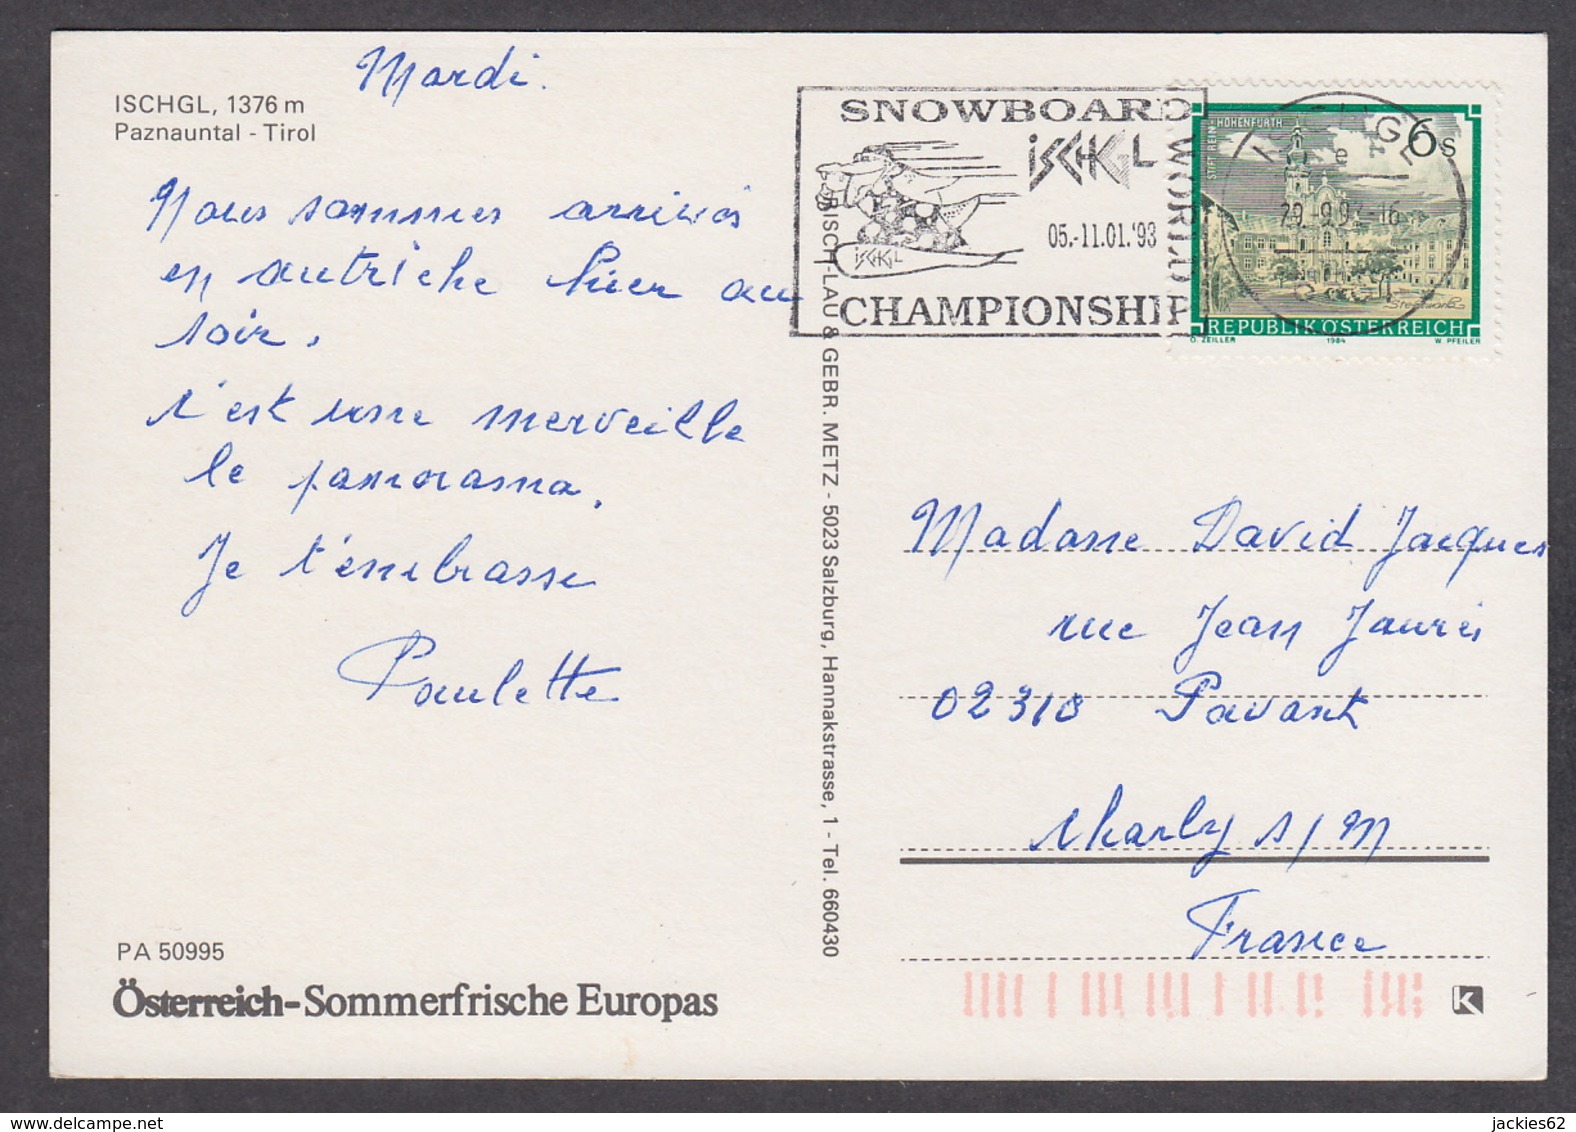 Mardi.
ISCHGL, 1376 m
Paznauntal - Tirol
Nous sommes arrivés
en autriche hier au
soir.
c'est une merveille
le panorama.
Je t'embrasse
Paulette
PA 50995
Österreich-Sommerfrische Europas
RISCH-LAU & GEBR. METZ - 5023 Salzburg, Hannakstrasse, 1 - Tel. 660430
SNOWBOARD
WORLD
ISCHGL
05.-11.01.'93
ISCHGL
CHAMPIONSHIP
STIFT REIN-HOHENFURTH
6s
REPUBLIK ÖSTERREICH
O. ZEILLER 1984 W. PFEILER
Madame David Jacques
rue Jean Jaurès
02310 Pavant
charly s/m
France
K
delcampe.net
jackies62